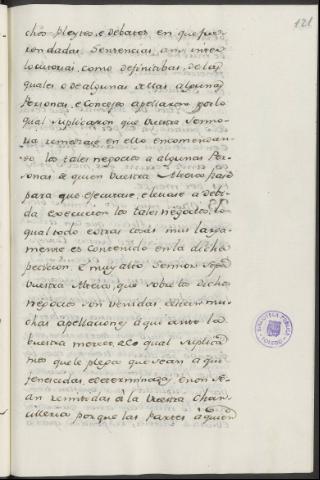 121
chos Pleytos, e debates en que fue=
ron dadas Sentencias, ansi inter
locutorias, como definitibas, de las
quales o de algunas dellas algunas
Personas, e Concejos apellaron por lo
qual suplicaron que Vuestra Senno=
ria remediase en ello encomendan=
do los tales negocios a algunas Per=
sonas de quien Vuestra Merced
para que ejecutase, e levase a debi=
da execucion los tales negocios, lo
qual todo e otras cosas mas larga=
mente es contenido en la dicha
peticion. E muy alto Sennor
Vuestra Merced, que sobre los dichos
negocios son venidas muchas
apellaciones aqui ante la
Vuestra merced, a lo qual suplica
mos que le plega que sean aqui
fenecidas, e determinadas, e non se=
an remitidas a la Vuestra Chan=
cilleria porque las Partes a quien
BIBLIOTECA PUBLICA
TOLEDO